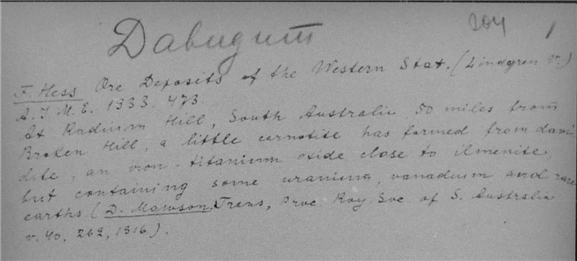 204 1
F. Hess Ore Deposits of the Western Stat. (Lindgren v.)
A.I.M.E. 1933. 473.
At Radium Hill, South Australia, 50 miles from
Broken Hill, a little carnotite has formed from davi
dite, an iron-titanium oxide close to ilmenite
but containing some uranium, vanadium and rare
earths (D. Mawson, Trans, Proc. Roy. Soc. of S. Australia
v. 40, 262, 1916).